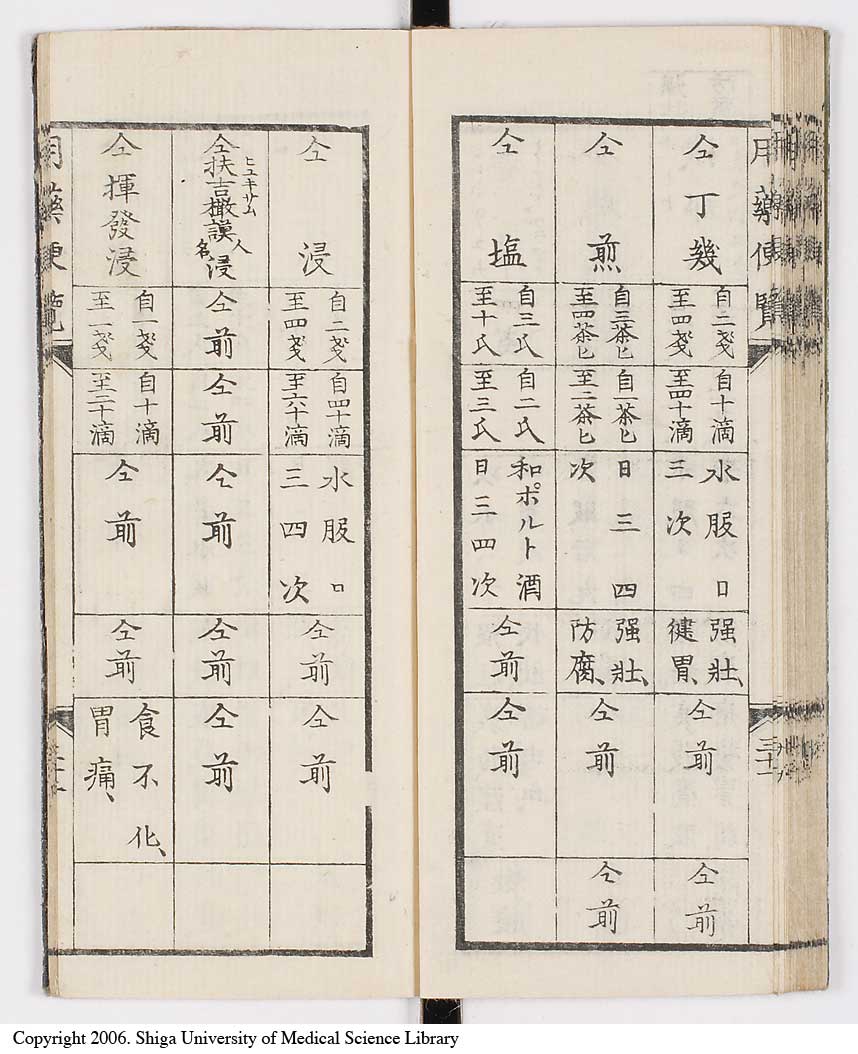 用藥便覽
三十一
仝丁幾
自二戔
至四戔
自十滴
至四十滴
水服日
三次
强壯、
健胃、
仝前
仝前
仝煎
自三茶匕
至四茶匕
自一茶匕
至二茶匕
日三四
次
强壯、
防腐、
仝前
仝前
仝塩
自三氏
至十氏
自二氏
至三氏
和ポルト酒
日三四次
仝前
仝前
仝浸
自二戔
至四戔
自四十滴
至六十滴
水服日
三四次
仝前
仝前
仝扶吉撒謨人名浸
ヒユキサム
仝前
仝前
仝前
仝前
仝前
仝揮發浸
自一戔
至二戔
自十滴
至二十滴
仝前
仝前
食不化、
胃痛、
用藥便覽
Copyright 2006. Shiga University of Medical Science Library